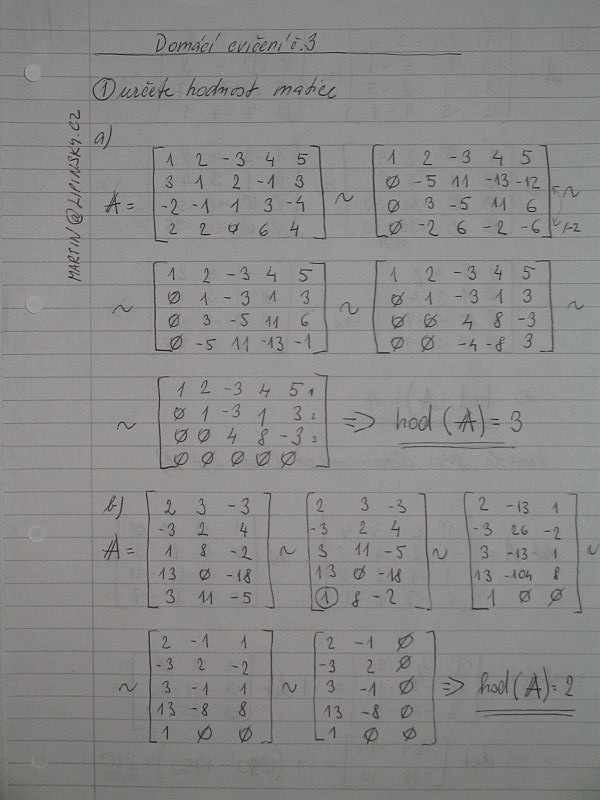 Domácí cvičení č.3
① určete hodnost matice
MARTIN@LIPINSKY.CZ
a)
A = [1 2 -3 4 5; 3 1 2 -1 3; -2 -1 1 3 -4; 2 2 0 6 4] ~ [1 2 -3 4 5; 0 -5 11 -13 -12; 0 3 -5 11 6; 0 -2 6 -2 -6] :-2 ~
~ [1 2 -3 4 5; 0 1 -3 1 3; 0 3 -5 11 6; 0 -5 11 -13 -1] ~ [1 2 -3 4 5; 0 1 -3 1 3; 0 0 4 8 -3; 0 0 -4 -8 3] ~
~ [1 2 -3 4 5 1; 0 1 -3 1 3 2; 0 0 4 8 -3 3; 0 0 0 0 0] => hod (A) = 3
b)
A = [2 3 -3; -3 2 4; 1 8 -2; 13 0 -18; 3 11 -5] ~ [2 3 -3; -3 2 4; 3 11 -5; 13 0 -18; ① 8 -2] ~ [2 -13 1; -3 26 -2; 3 -13 1; 13 -104 8; 1 0 0] ~
~ [2 -1 1; -3 2 -2; 3 -1 1; 13 -8 8; 1 0 0] ~ [2 -1 0; -3 2 0; 3 -1 0; 13 -8 0; 1 0 0] => hod (A) = 2